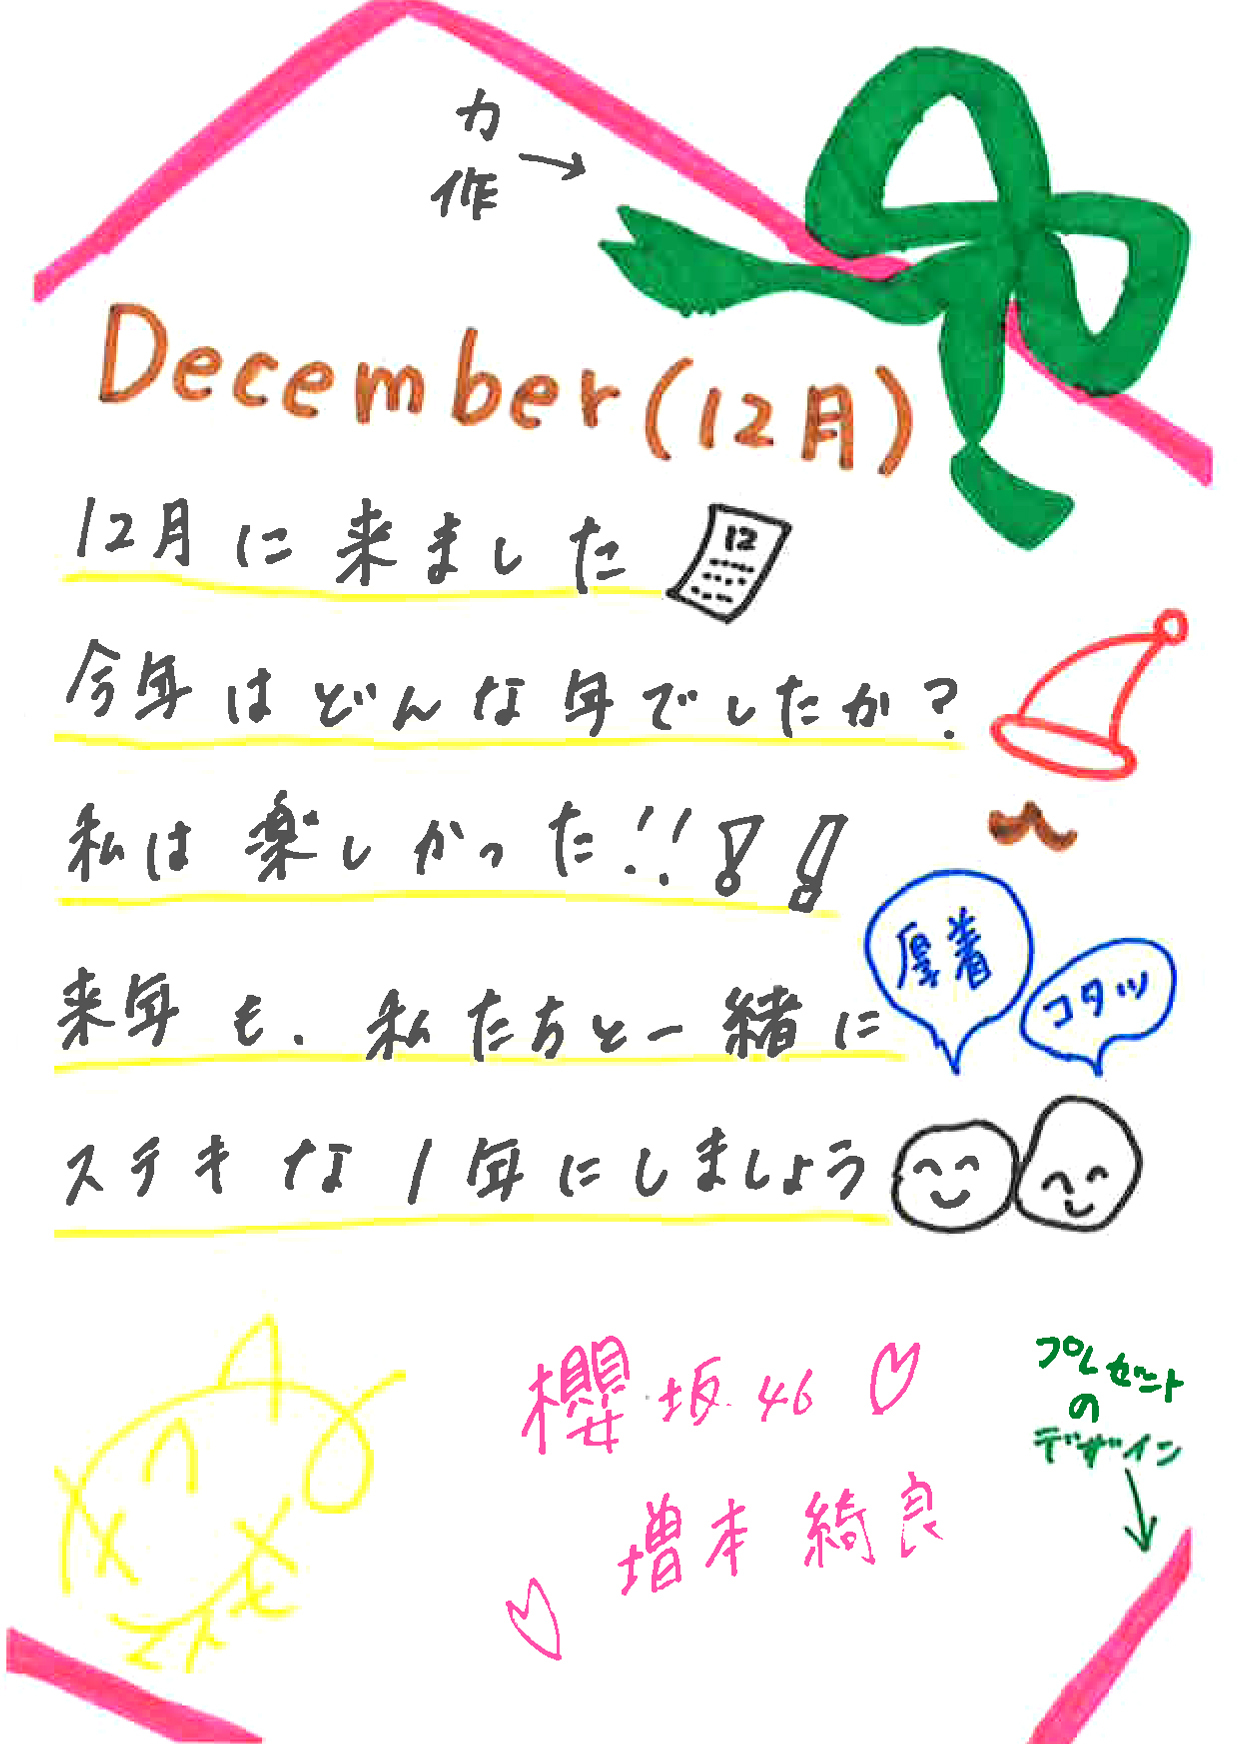 力
作→
December(12月)
12月に来ました
12
今年はどんな年でしたか?
私は楽しかった!!!!
厚着
コタツ
来年も、私たちと一緒に
ステキな1年にしましょう
櫻坂46♡
増本綺良
♡
プレゼント
の
デザイン